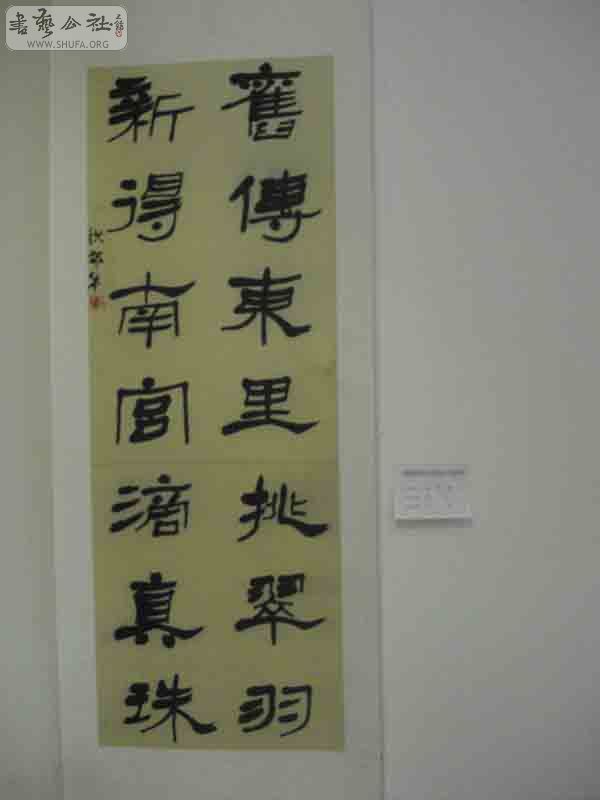 舊傳東里挑翠羽
新得南宮滴真珠
書藝公社
WWW.SHUFA.ORG